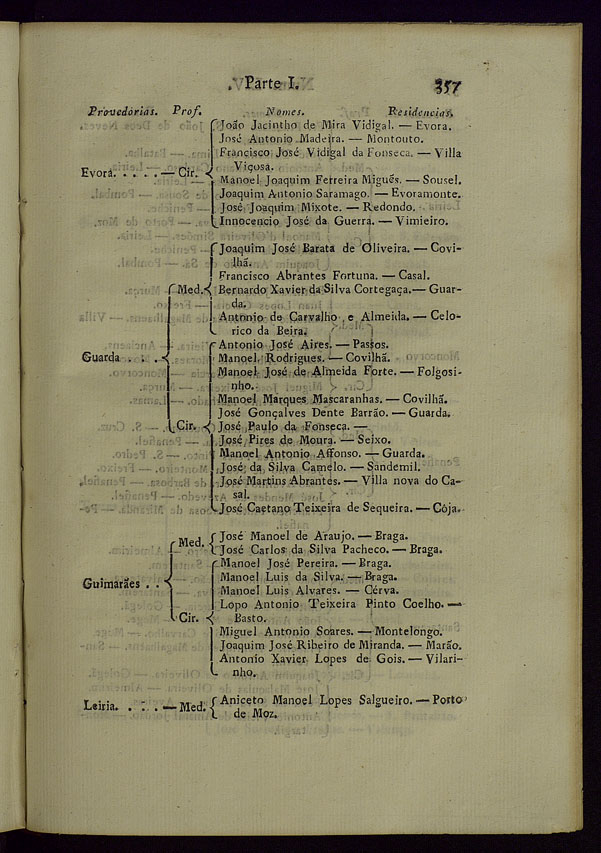 Parte I. 357
Provedorias. Prof. Nomes. Residencias.
João Jacintho de Mira Vidigal. — Evora.
José Antonio Madeira. — Montouto.
Francisco José Vidigal da Fonseca. — Villa
Viçosa.
Evora. . . . . — Cir.
Manoel Joaquim Ferreira Migués. — Sousel.
Joaquim Antonio Saramago. — Evoramonte.
José Joaquim Mixote. — Redondo.
Innocencio José da Guerra. — Vimieiro.
Joaquim José Barata de Oliveira. — Covi-
lhã.
Francisco Abrantes Fortuna. — Casal.
Med. Bernardo Xavier da Silva Cortegaça. — Guar-
da.
Antonio de Carvalho e Almeida. — Celo-
rico da Beira.
Antonio José Aires. — Passos.
Guarda . . . Manoel Rodrigues. — Covilhã.
Manoel José de Almeida Forte. — Folgosi-
nho.
Manoel Marques Mascaranhas. — Covilhã.
José Gonçalves Dente Barrão. — Guarda.
Cir. José Paulo da Fonseca. —
José Pires de Moura. — Seixo.
Manoel Antonio Affonso. — Guarda.
José da Silva Camelo. — Sandemil.
José Martins Abrantes. — Villa nova do Ca-
sal.
José Caetano Teixeira de Sequeira. — Côja.
Med. José Manoel de Araujo. — Braga.
José Carlos da Silva Pacheco. — Braga.
Manoel José Pereira. — Braga.
Guimarães . . Manoel Luis da Silva. — Braga.
Manoel Luis Alvares. — Cérva.
Lopo Antonio Teixeira Pinto Coelho. —
Cir. Basto.
Miguel Antonio Soares. — Montelongo.
Joaquim José Ribeiro de Miranda. — Marão.
Antonio Xavier Lopes de Gois. — Vilari-
nho.
Leiria. . . . — Med. Aniceto Manoel Lopes Salgueiro. — Porto
de Moz.